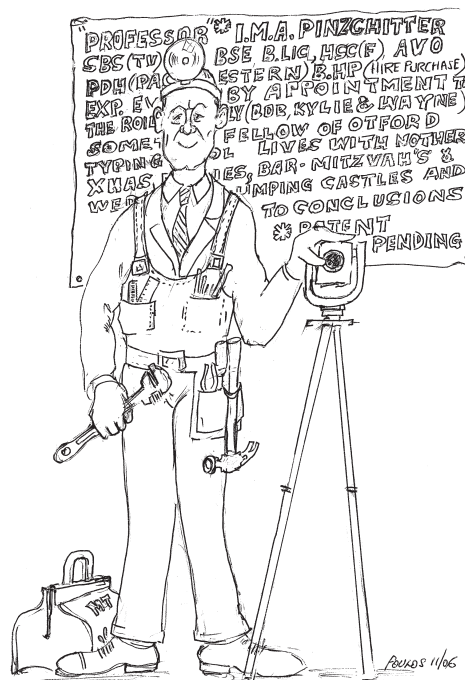 PROFESSOR "✻ I.M.A. PINZCHITTER
SBS(TV) BSE B.LIC, HSC(F) AVO
PDH(PA ESTERN) B.HP (HIRE PURCHASE)
EXP. EV BY APPOINTMENT T
THE ROY LY (BOB, KYLIE & WAYNE)
SOME FELLOW OF OTFORD
TYPING OL LIVES WITH MOTHER
XMAS, IES, BAR-MITZVAH'S &
WE UMPING CASTLES AND
TO CONCLUSIONS
✻ PATENT
PENDING
POULOS 11/06